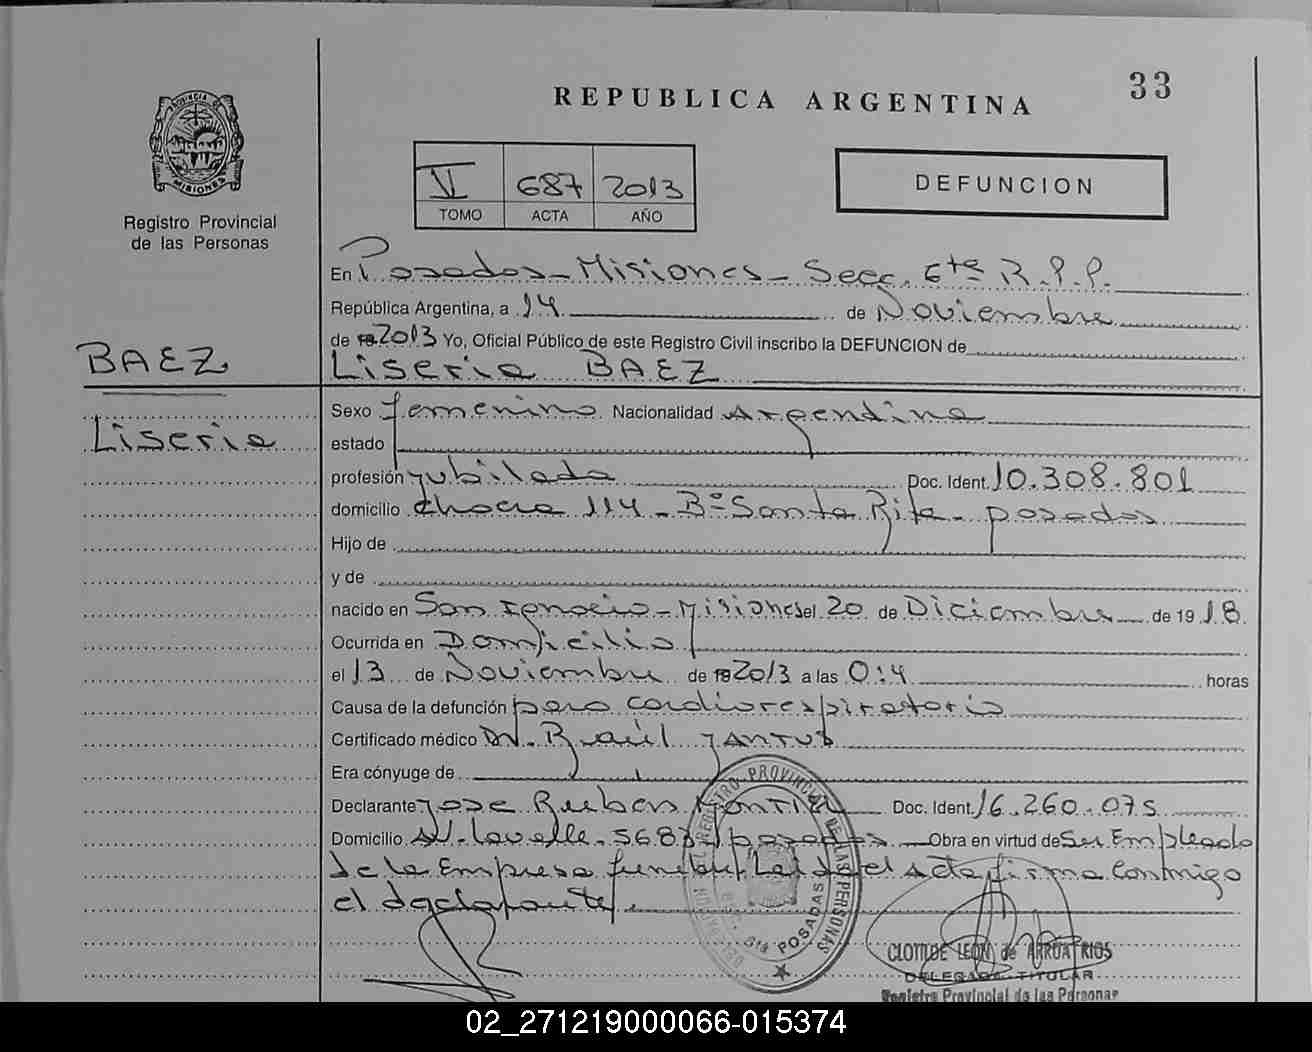 33
REPUBLICA ARGENTINA
PROVINCIA DE MISIONES
Registro Provincial
de las Personas
VI 687 2013
TOMO ACTA AÑO
DEFUNCION
En Posadas - Misiones - Secc. 6ta R.P.P.
República Argentina, a 14 de Noviembre
de 2013 Yo, Oficial Público de este Registro Civil inscribo la DEFUNCION de
BAEZ
Liseria BAEZ
Liseria
Sexo femenino Nacionalidad Argentina
estado
profesión jubilada Doc. Ident. 10.308.801
domicilio chacra 114 - Bº Santa Rita - posadas
Hijo de
y de
nacido en San Ignacio - Misiones el 20 de Diciembre de 1918
Ocurrida en Domicilio
el 13 de Noviembre de 2013 a las 0:4 horas
Causa de la defunción paro cardiorespiratorio
Certificado médico Dr. Raúl
Era cónyuge de
Declarante Jose Ruben Montiel Doc. Ident. 16.260.075
Domicilio Av. Lavalle - 5683 posadas Obra en virtud de Ser Empleado
de la Empresa funebre. Leida el Acta firma Conmigo
el declarante.
REGISTRO PROVINCIAL DE LAS PERSONAS
SEC. 6ta POSADAS
CLOTILDE LEON de ARRUA RIOS
DELEGADA TITULAR
Registro Provincial de las Personas
02_271219000066-015374